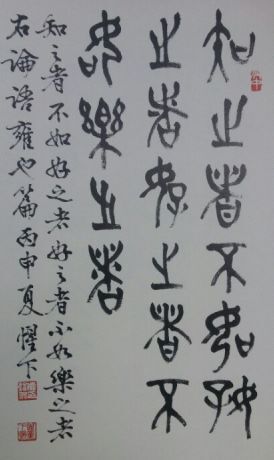 知之者不如好
之者好之者不
如樂之者
知之者不如好之者好之者不如樂之者
右論語雍也篇丙申夏